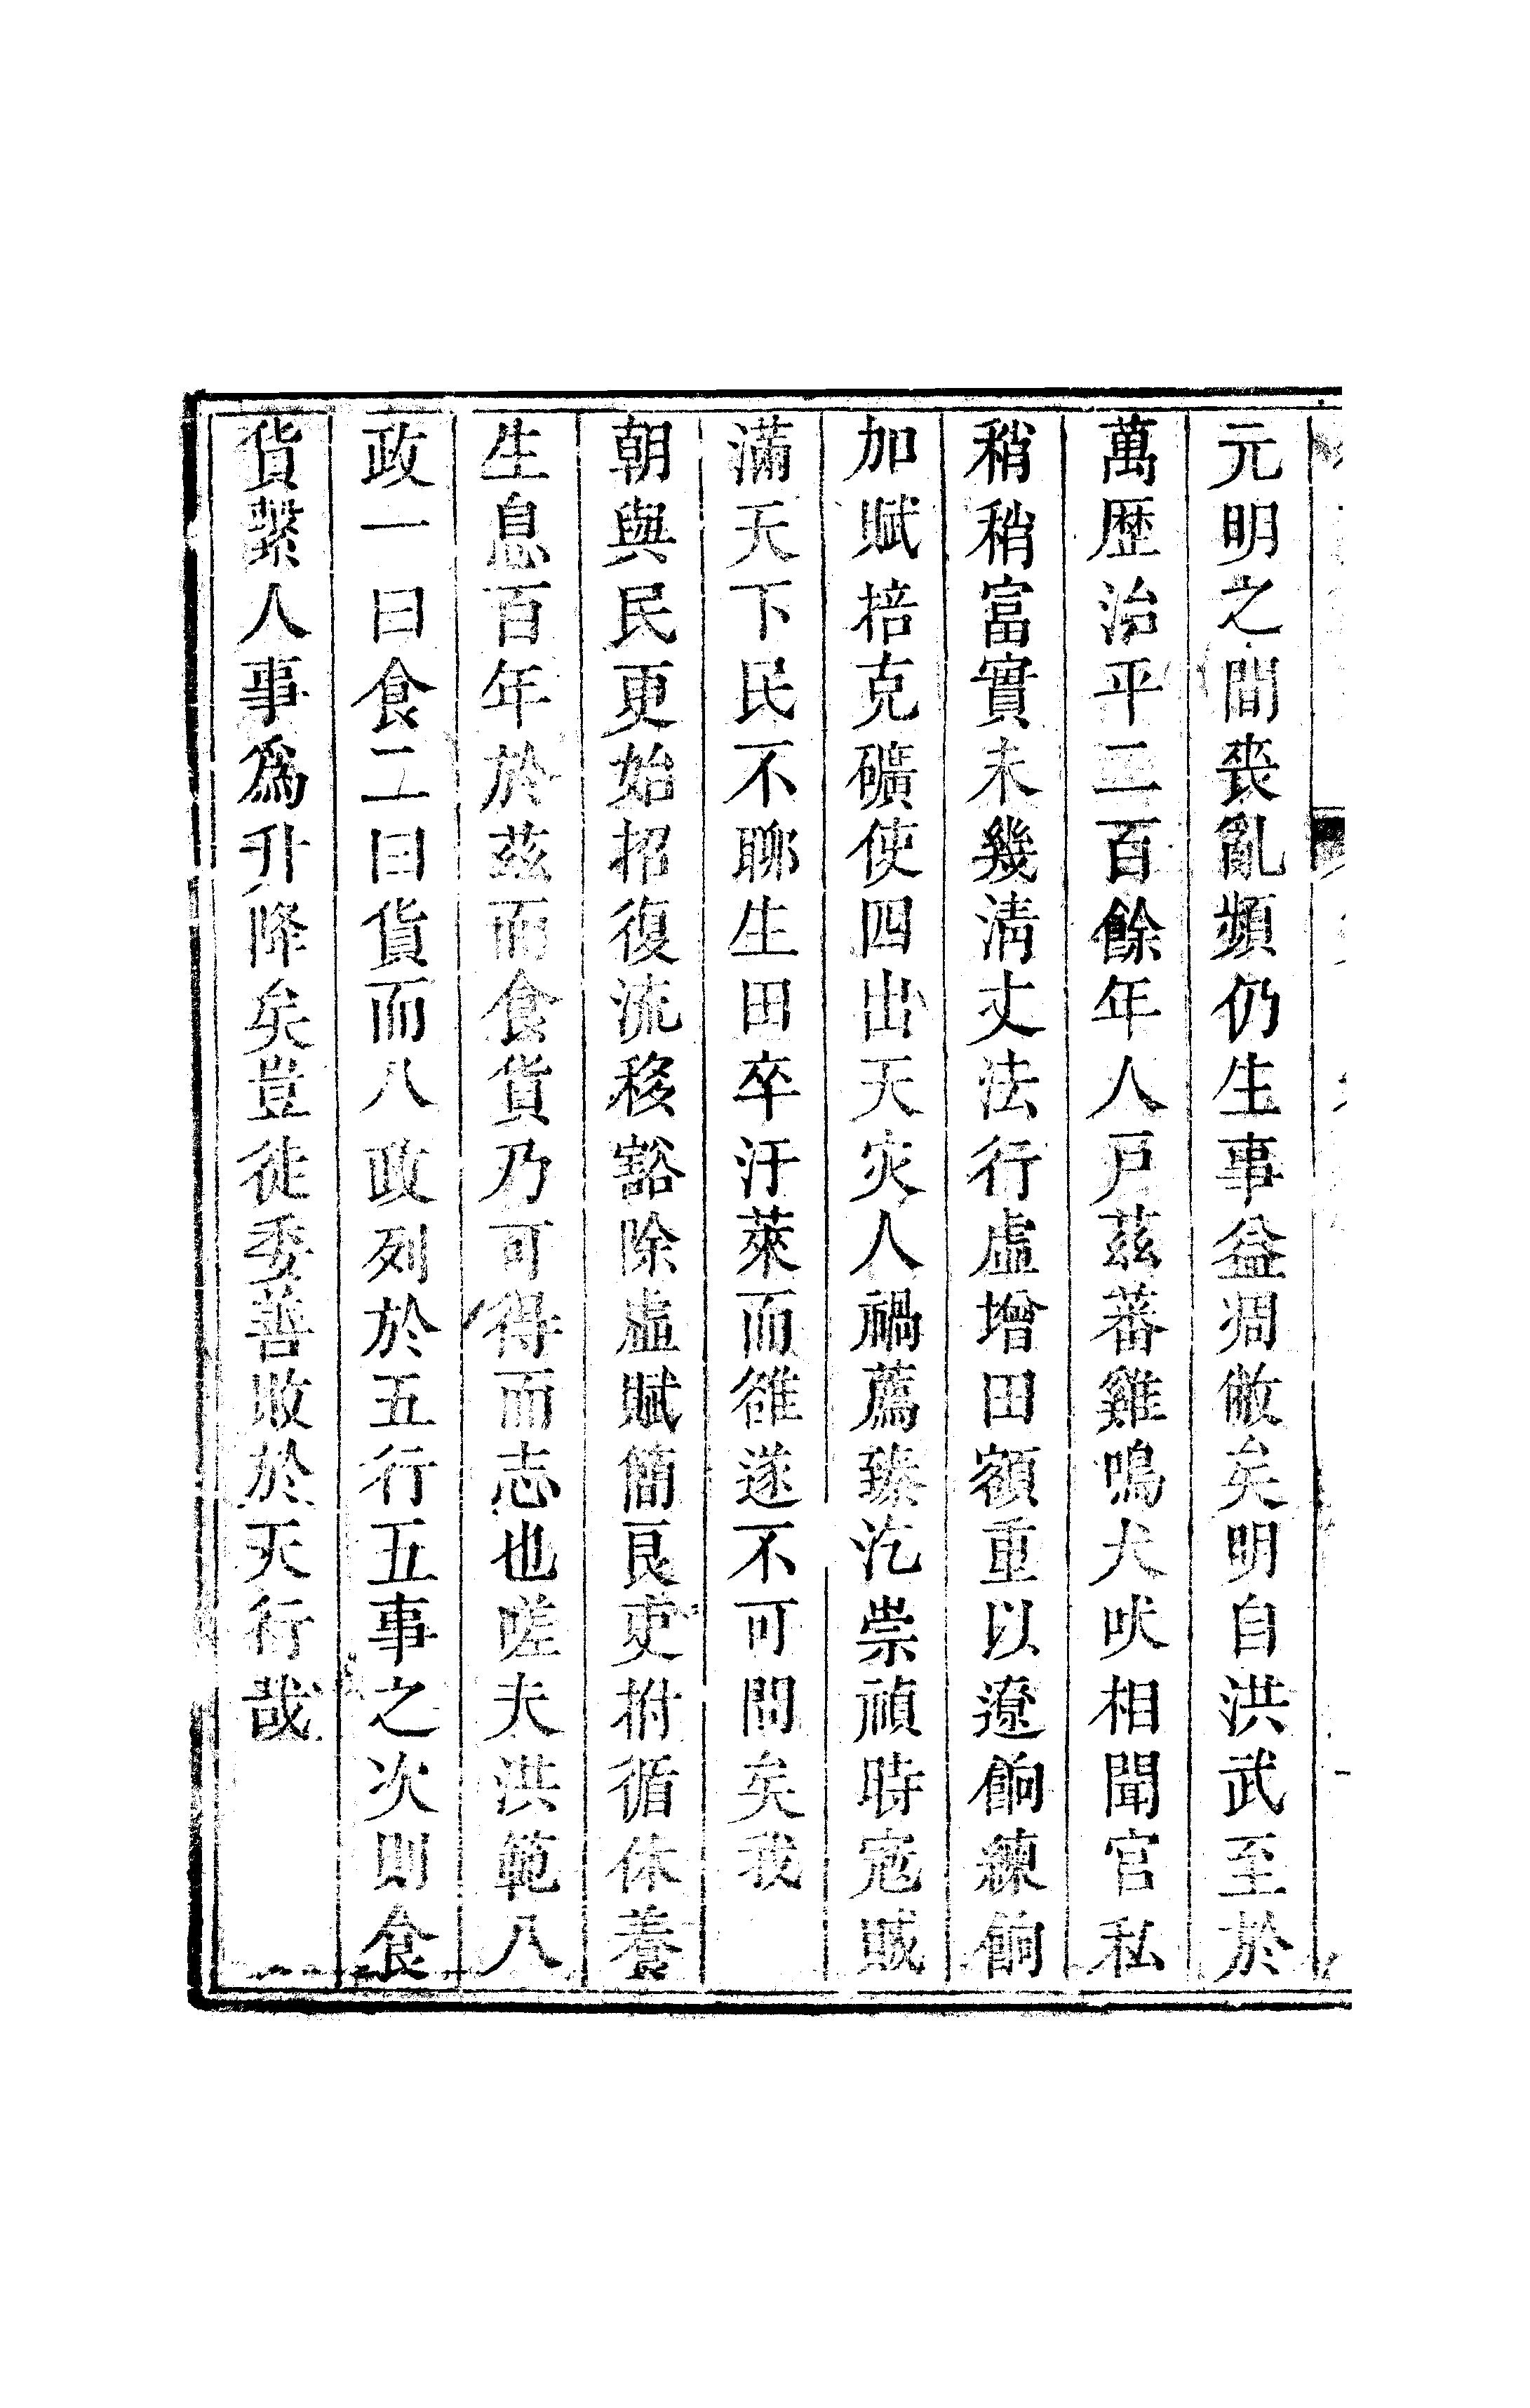 元明之間喪亂頻仍生事益凋敝矣明自洪武至於
萬歷治平二百餘年人戸茲蕃雞鳴犬吠相聞官私
稍稍富實未幾淸丈法行虛增田額重以遼餉練餉
加賦掊克礦使四出天灾人禍薦臻汔崇禎時寇賊
滿天下民不聊生田卒汙萊而雒遂不可問矣我
朝與民更始招復流移豁除虛賦簡良吏拊循休養
生息百年於茲而食貨乃可得而志也嗟夫洪範八
政一曰食二曰貨而八政列於五行五事之次則食
貨繫人事爲升降矣豈徒委善敗於天行哉